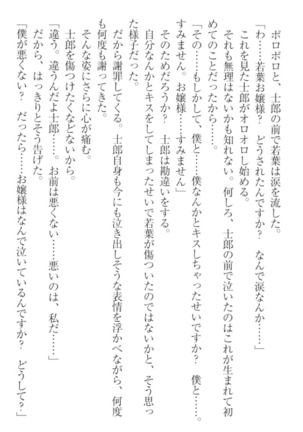 ポロポロと、士郎の前で若葉は涙を流した。
「わ……若葉お嬢様？　どうされたんですか？　なんで涙なんか……」
これを見た士郎がオロオロし始める。
それも無理はないかも知れない。何しろ、士郎の前で泣いたのはこれが生まれて初
めてのことだったから……。
「その……もしかして、僕と、僕なんかとキスしちゃったせいですか？　僕と……。
すみません。お嬢様……すみません」
そのためだろうか？　士郎は勘違いをする。
自分なんかとキスをしてしまったせいで若葉が傷ついたのではないかと、そう思っ
た様子だった。
だから謝罪してくる。士郎自身も今にも泣き出しそうな表情を浮かべながら、何度
も何度も謝ってきた。
そんな姿にさらに心が痛む。
士郎を傷つけたくなどないから。
「違う。違うんだよ士郎……。お前は悪くない……悪いのは、私だ……」
だから、はっきりとそう告げた。
「僕が悪くない？　だったら……お嬢様はなんで泣いているんですか？　どうして？」